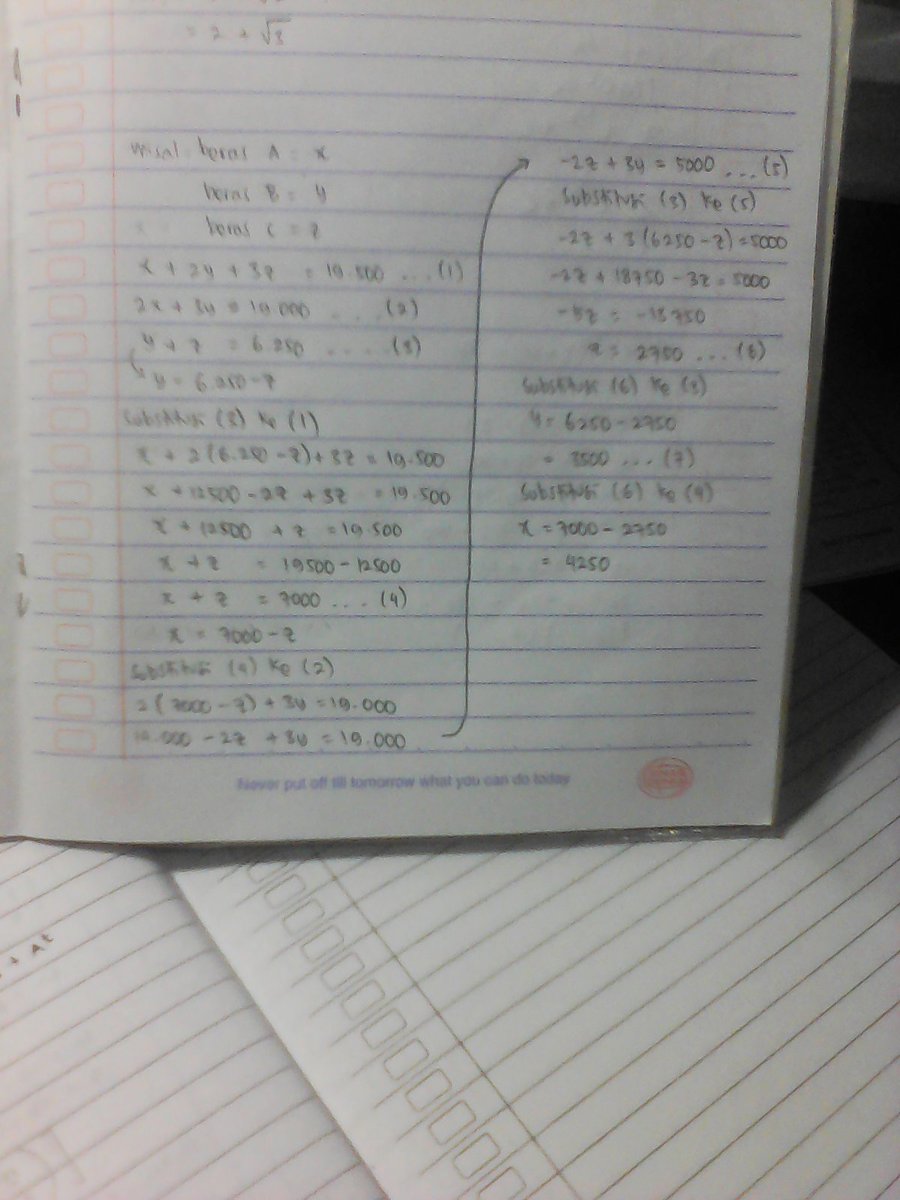 = 2 + √3
misal beras A = x
beras B = y
beras C = z
x + 2y + 3z = 19.500 ... (1)
2x + 3y = 19.000 ... (2)
y + z = 6.250 .... (3)
y = 6.250 - z
substitusi (3) ke (1)
x + 2(6.250 - z) + 3z = 19.500
x + 12500 - 2z + 3z = 19.500
x + 12500 + z = 19.500
x + z = 19500 - 12500
x + z = 7000 ... (4)
x = 7000 - z
substitusi (4) ke (2)
2(7000 - z) + 3y = 19.000
14.000 - 2z + 3y = 19.000
-2z + 3y = 5000 ... (5)
substitusi (3) ke (5)
-2z + 3(6250 - z) = 5000
-2z + 18750 - 3z = 5000
-5z = -13750
z = 2750 ... (6)
substitusi (6) ke (3)
y = 6250 - 2750
= 3500 ... (7)
substitusi (6) ke (4)
x = 7000 - 2750
= 4250
Never put off till tomorrow what you can do today
+ At